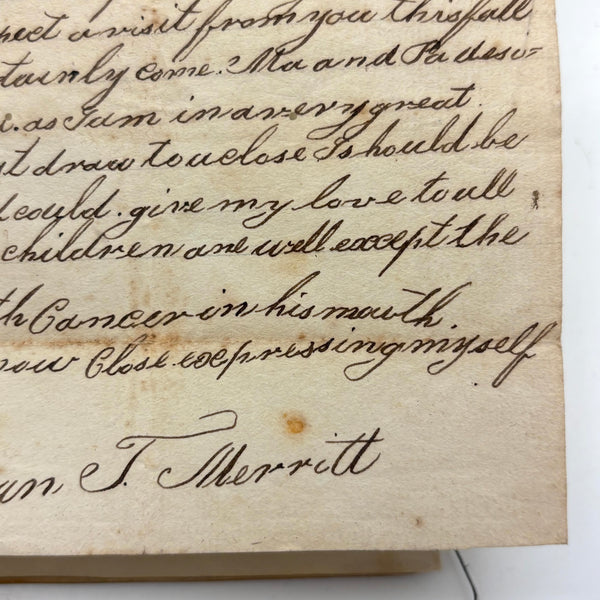 pect a visit from you this fall
tainly come. Ma and Pa desi=
as I am in a very great
st draw to a close I should be
could. give my love to all
children are well except the
th Cancer in his mouth
now Close expressing myself
an T. Merritt